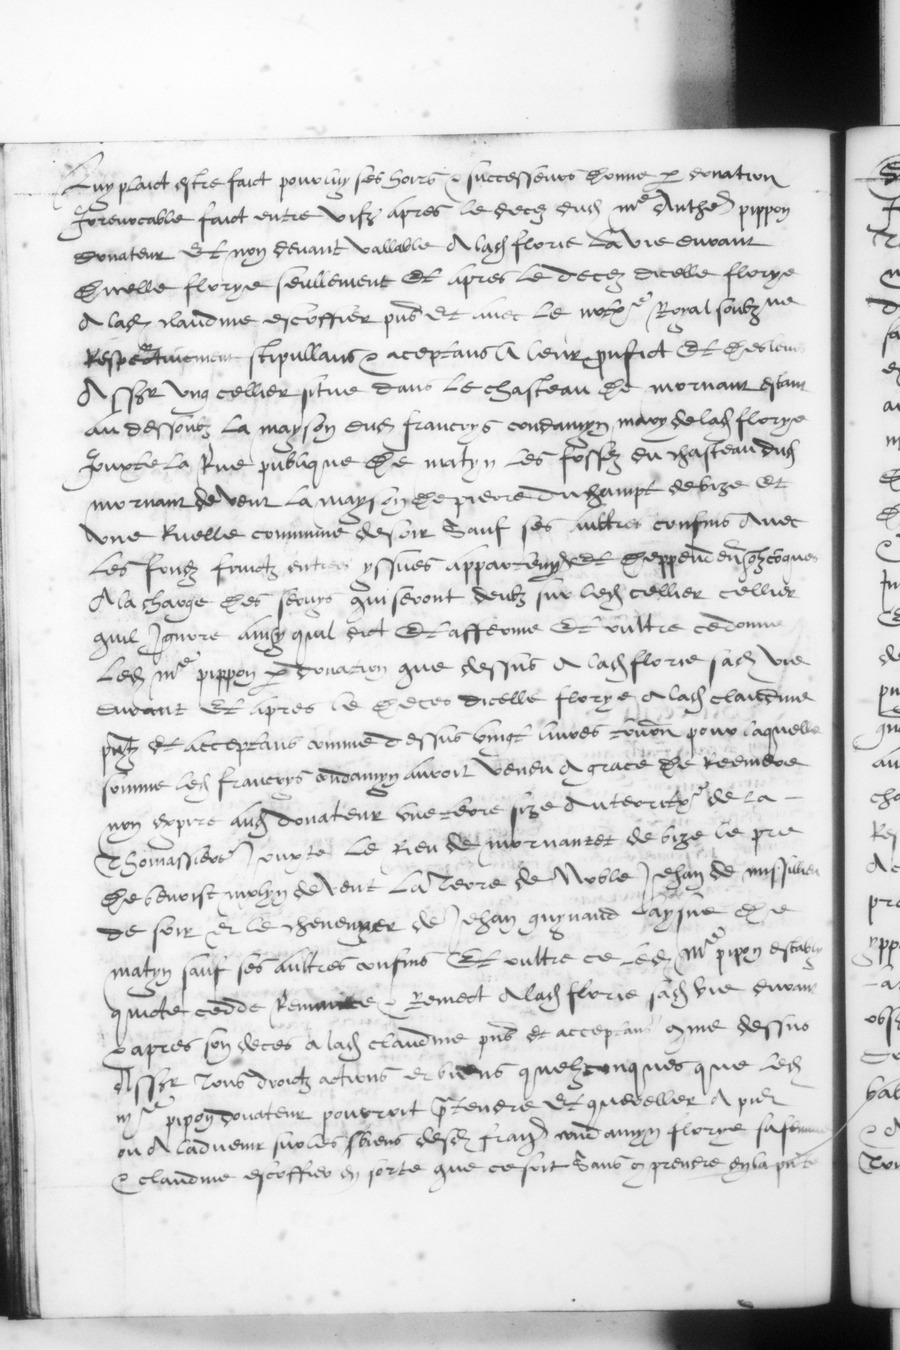 Luy plaict estre faict pour luy ses hoirs & successeurs donne p donation
Irrevocable faict entre vifz apres le decez dud me Anthe pippon
donateur Et non devant vallable A lad florie La vie durant
dicelle florye seullement Et apres le decez dicelle florye
A lad claudine escoffier pnt Et avec Le notre Royal soubzne
Respectivement stipullans & aceptans A leur proffict Et des leurs
Assr Ung cellier situe dans Le chasteau de mornant estant
au dessoubz La mayson dud francoys condamyn mary de lad florye
Jouxte La Rue publique de matyn Les fossez du chasteau dud
mornant de vent La mayson de pierre du champt de bize Et
Une Ruelle commune de soir Sauf ses aultres confins Avec
Les fondz fruictz entrees yssues appartenances Et
A la charge des servys qui seront deubz sur led cellier cellier
quil Ignore ainsy quil dict Et afferme Et oultre ce donne
Led me pippon p donation que dessus A lad florie sad vie
durant Et apres le deces dicelle florye A lad claudine
pntz Et acceptans comme dessus vingt livres pour laquelle
somme led francoys condamyn auroit vendu A grace de Reemere
non expire aud donateur une terre size Au de La
Thomassiere Jouxte Le Rieu de mornantet de bize le pre
de benoist molyn de vent La Terre de Noble Jehan de
de soir & le chenevyer de Jehan guynand Laysne de
matyn sauf ses aultres confins Et oultre ce Led Me pipon
quicte cedde Remect A lad florie sad vie durant
& apres son deces a lad claudine pnt et acceptans come dessus
Assr Tous droictz actions et biens quelzconques que Led
me pipon donateur pourroit ptendre Et quereller A pnt
ou A ladvenir sur les biens desd franc condamyn florye sa femme
& claudine escoffier en sorte que ce soit Sans comprendre en la